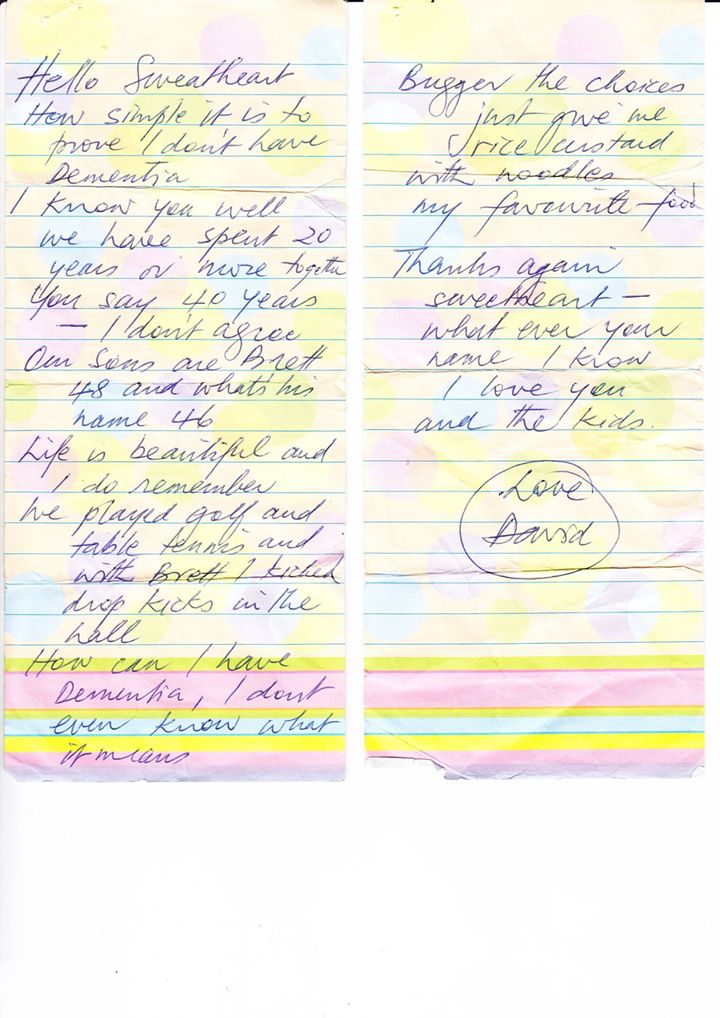 Hello Sweatheart
How simple it is to
prove I don't have
Dementia
I know you well
we have spent 20
years or more together
You say 40 years
— I don't agree
Our Sons are Brett
48 and what's his
name 46
Life is beautiful and
I do remember
We played golf and
table tennis and
with Brett I kicked
drop kicks in the
hall
How can I have
Dementia, I dont
even know what
it means
Bugger the choices
just give me
rice custard
with noodles
my favourite food
Thanks again
sweetheart —
what ever your
name I know
I love you
and the kids.
Love
David